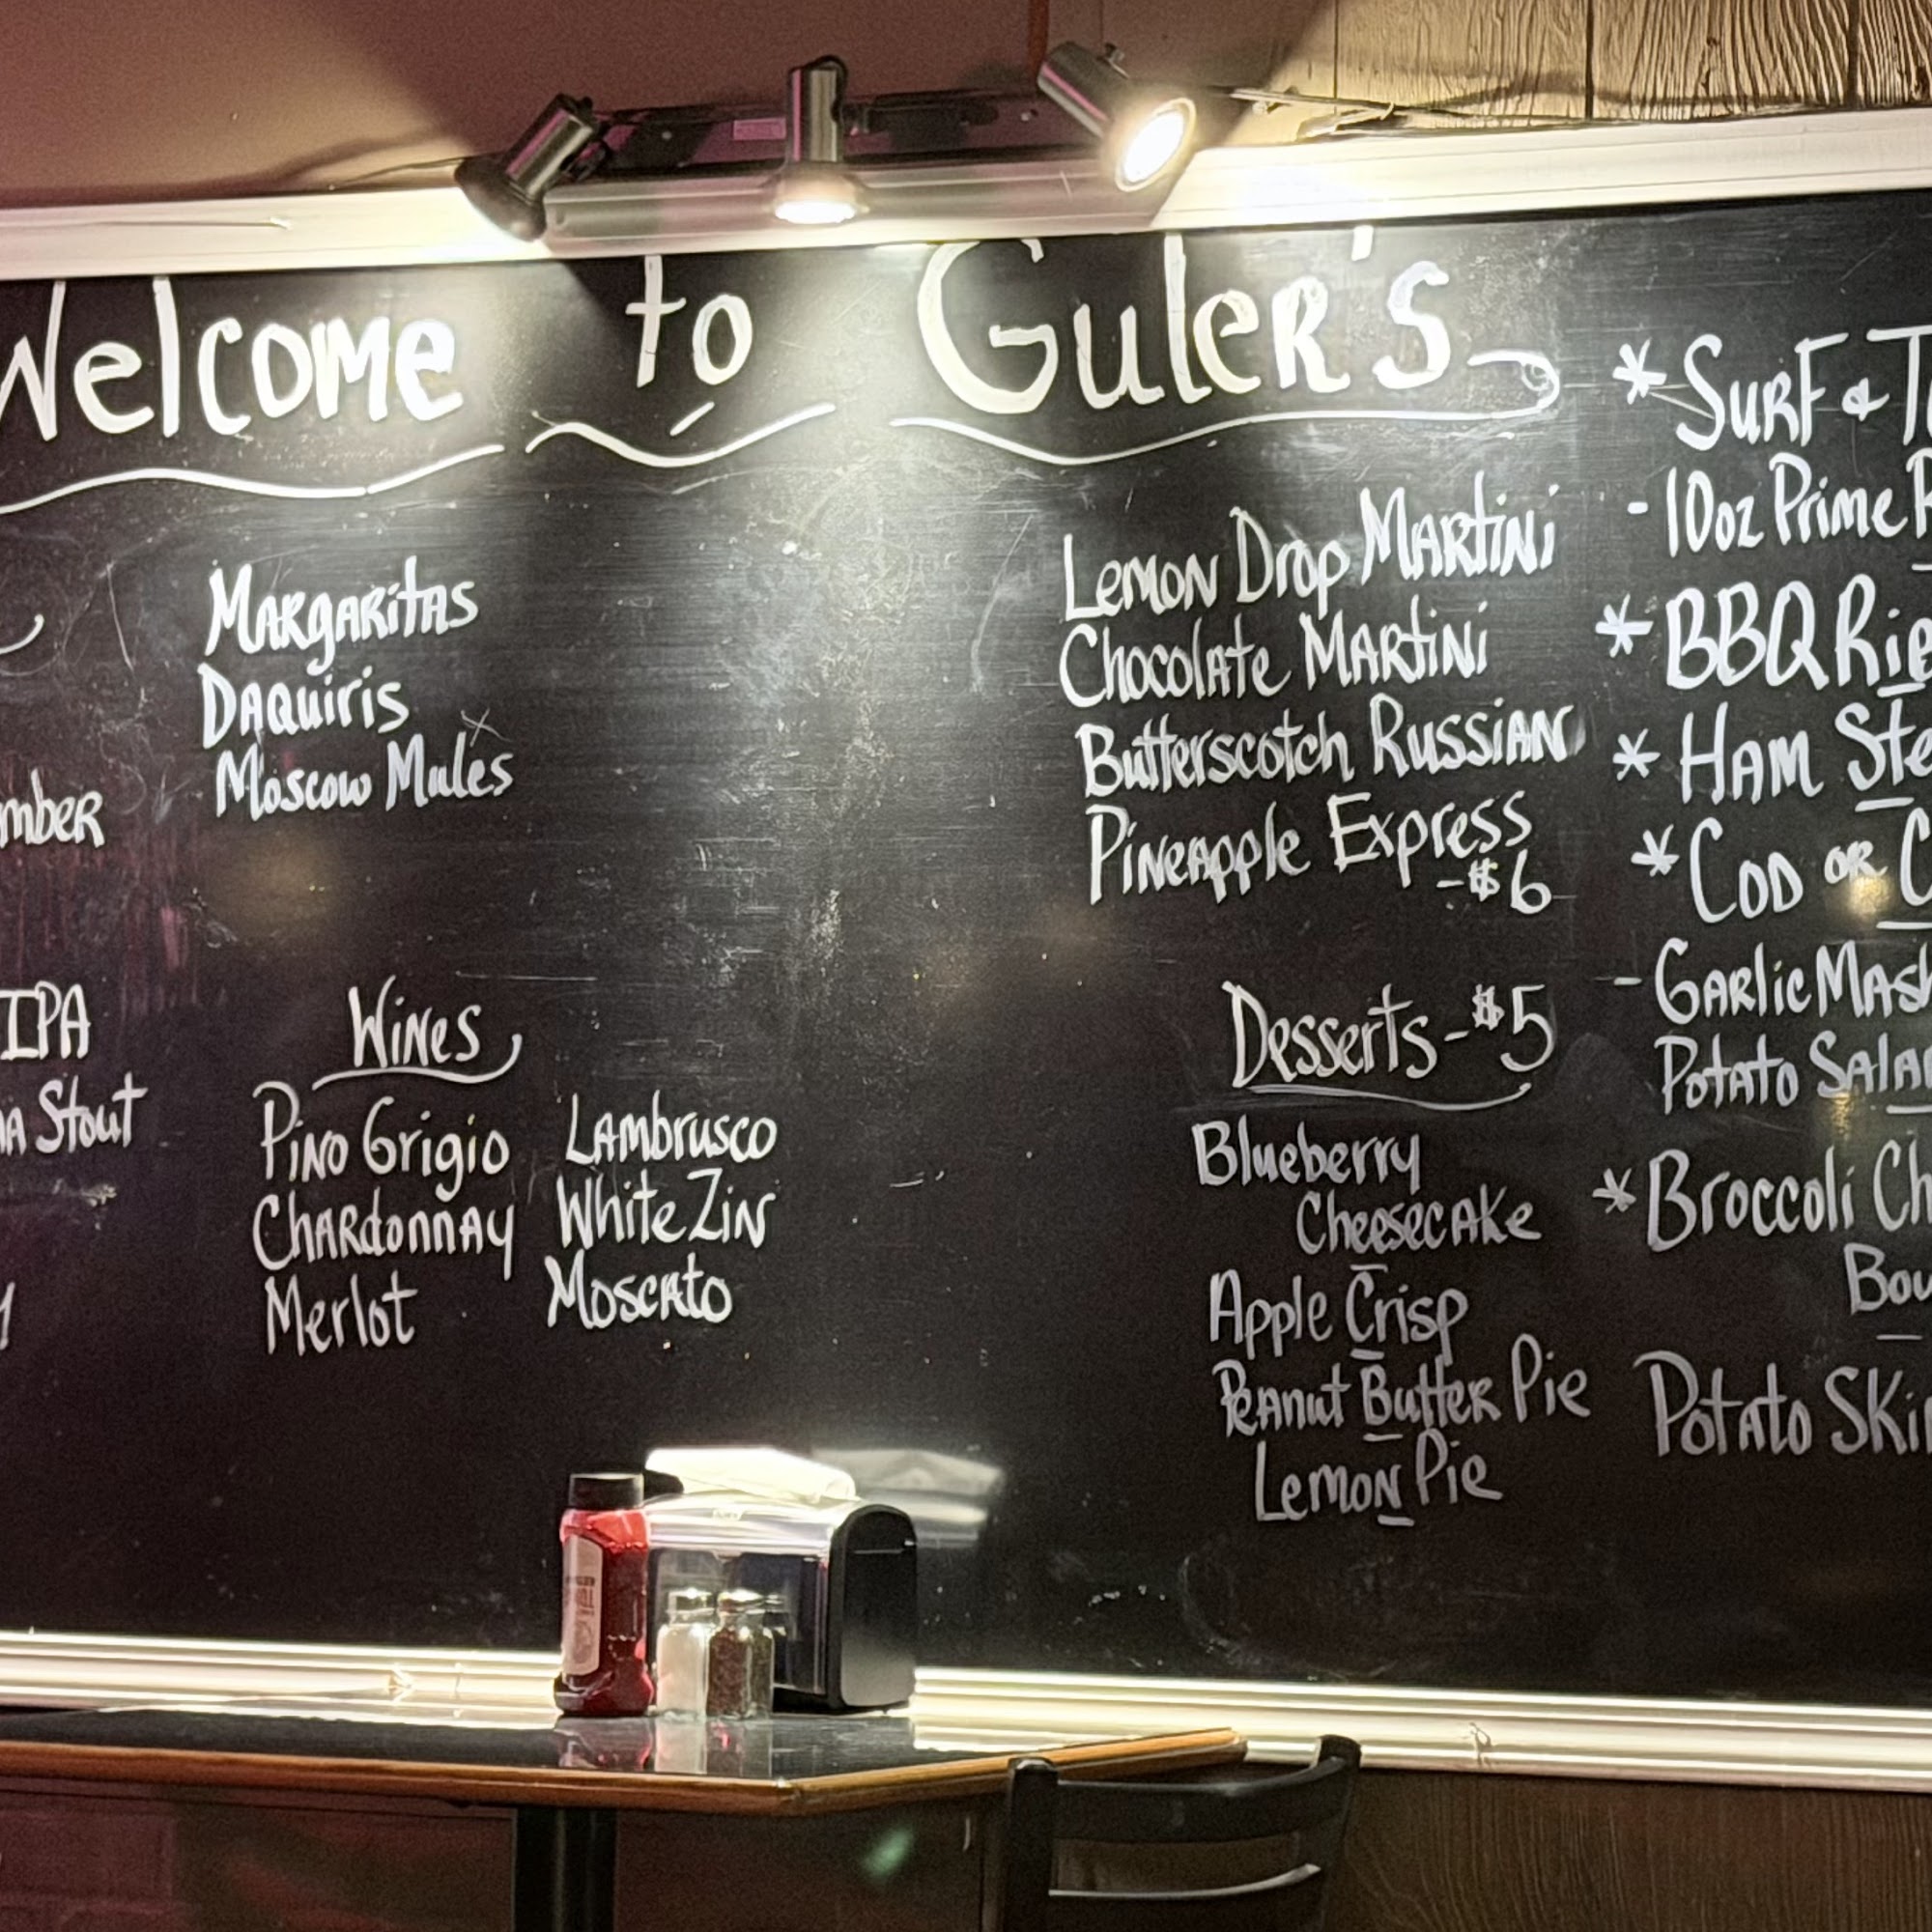 Welcome to Guler's
Margaritas
Daquiris
Moscow Mules
IPA
Stout
Wines
Pino Grigio
Chardonnay
Merlot
Lambrusco
White Zin
Moscato
Lemon Drop Martini
Chocolate Martini
Butterscotch Russian
Pineapple Express
-$6
Desserts-$5
Blueberry
Cheesecake
Apple Crisp
Peanut Butter Pie
Lemon Pie
* Surf &
- 10oz Prime
* BBQ
* Ham
* Cod or
- Garlic
Potato
* Broccoli
Potato